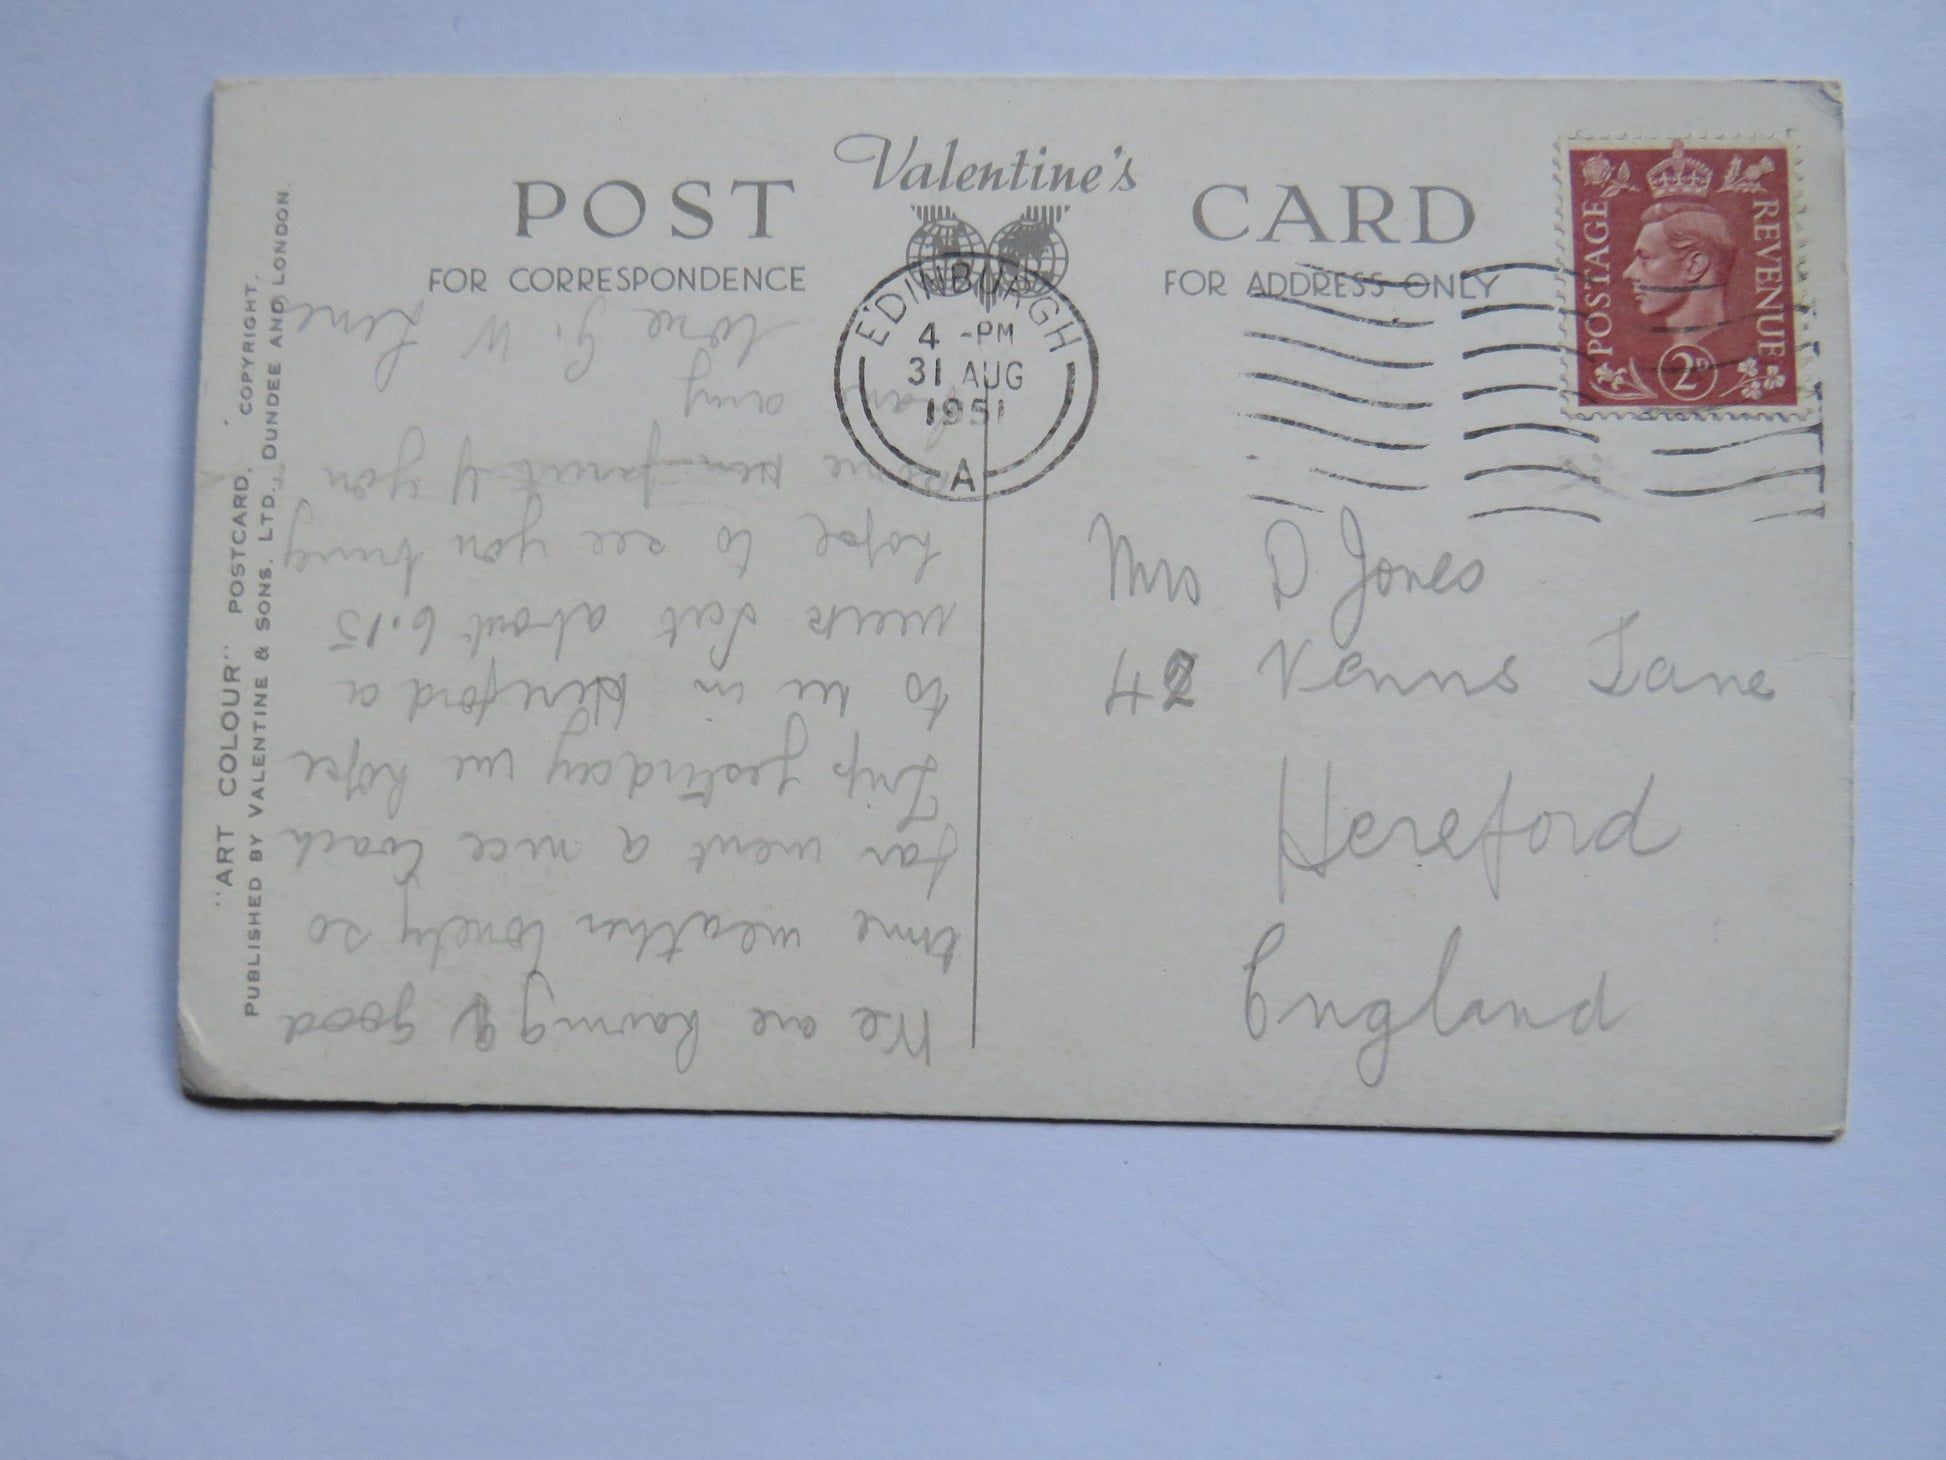 POST Valentine's CARD
FOR CORRESPONDENCE
FOR ADDRESS ONLY
POSTAGE
REVENUE
2D
EDINBURGH
4 -PM
31 AUG
1951
A
Mrs D Jones
42 Venns Lane
Hereford
England
We are having a good
time weather lovely so
far went a nice Coach
Trip yesterday we hope
to be in Hereford a
week Sat about 6.15
hope to see you bring
some if you
any
love G. W
"ART COLOUR" POSTCARD. COPYRIGHT.
PUBLISHED BY VALENTINE & SONS, LTD., DUNDEE AND LONDON.